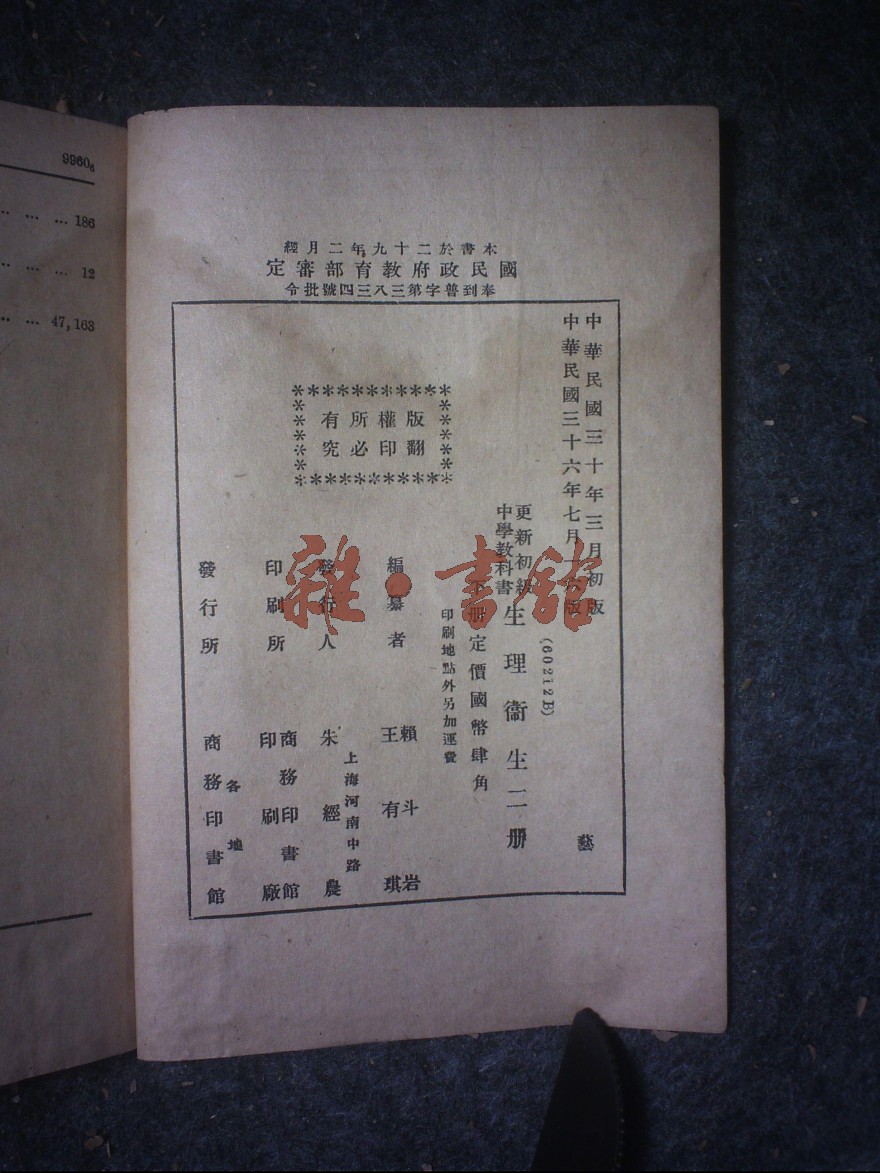 9960₆
… … … 186
… … … 12
… … … 47,163
本書於二十九年二月經
國民政府教育部審定
奉到普字第三八三四號批令
中華民國三十年三月初版
中華民國三十六年七月 六版
版權所有
翻印必究
(60212B)
更新初級
中學教科書
生理衞生二册
下册定價國幣肆角
印刷地點外另加運費
編纂者
賴斗岩
王有琪
發行人
上海河南中路
朱經農
印刷所
商務印書館
印刷廠
發行所
各地
商務印書館
藝
雜·書館